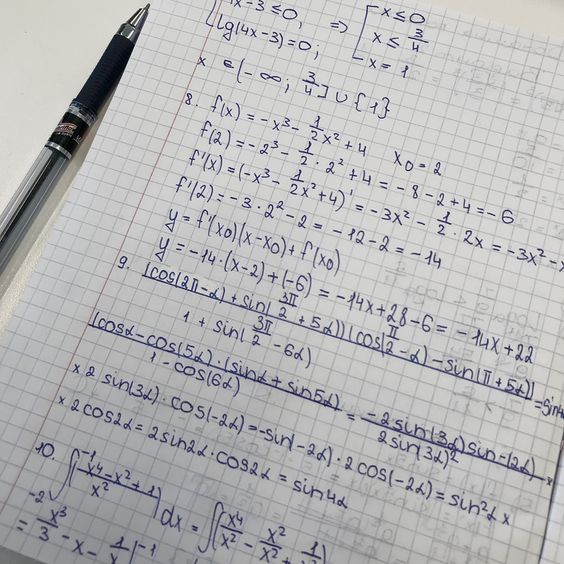 4x-3≤0,
lg(4x-3)=0; ⇒ [x≤0
x≤3/4
x=1
x∈(-∞; 3/4]∪{1}
8. f(x)=-x³-1/2x²+4 x₀=2
f(2)=-2³-1/2·2²+4=-8-2+4=-6
f'(x)=(-x³-1/2x²+4)'=-3x²-1/2·2x=-3x²-x
f'(2)=-3·2²-2=-12-2=-14
y=f'(x₀)(x-x₀)+f(x₀)
y=-14·(x-2)+(-6)=-14x+28-6=-14x+22
9. (cos(2π-α)+sin(3π/2+5α))(cos(π/2-α)-sin(π+5α))/1+sin(3π/2-6α)=sin4
(cosα-cos(5α)·(sinα+sin5α)/1-cos(6α)=-2sin(3α)sin-(2α)/2sin(3α)² ×
×2sin(3α)·cos(-2α)=-sin(-2α)·2cos(-2α)=sin²α×
×2cos2α=2sin2α·cos2α=sin4α
10. ∫₋₂⁻¹(x⁴-x²+1/x²)dx=∫(x⁴/x²-x²/x²+1/x²)
=x³/3-x-1/x|⁻¹